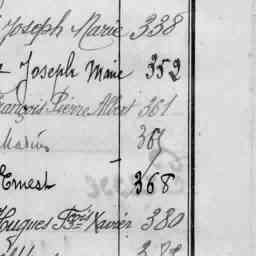 Joseph Marie 338
Joseph Marie 352
François Pierre Albert 361
Marius 36
Ernest 368
Hugues Fçois Xavier 380